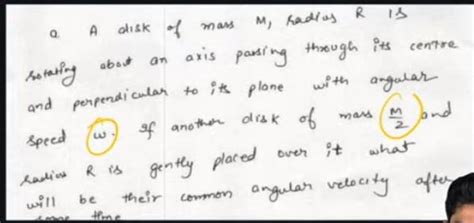 Q. A disk of mass M, radius R is
rotating about an axis passing through its centre
and perpendicular to its plane with angular
speed ω. If another disk of mass M/2 and
radius R is gently placed over it what
will be their common angular velocity after
some time